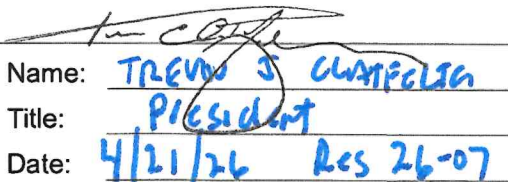 Name: TREVOR J
Title: President
Date: 4/21/26 Res 26-07